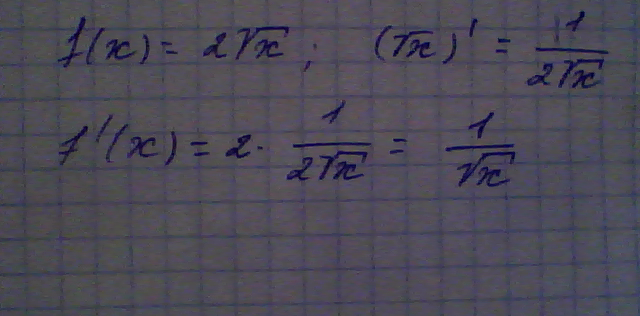 f(x) = 2√x ; (√x)' = 1/(2√x)
f'(x) = 2 · 1/(2√x) = 1/√x